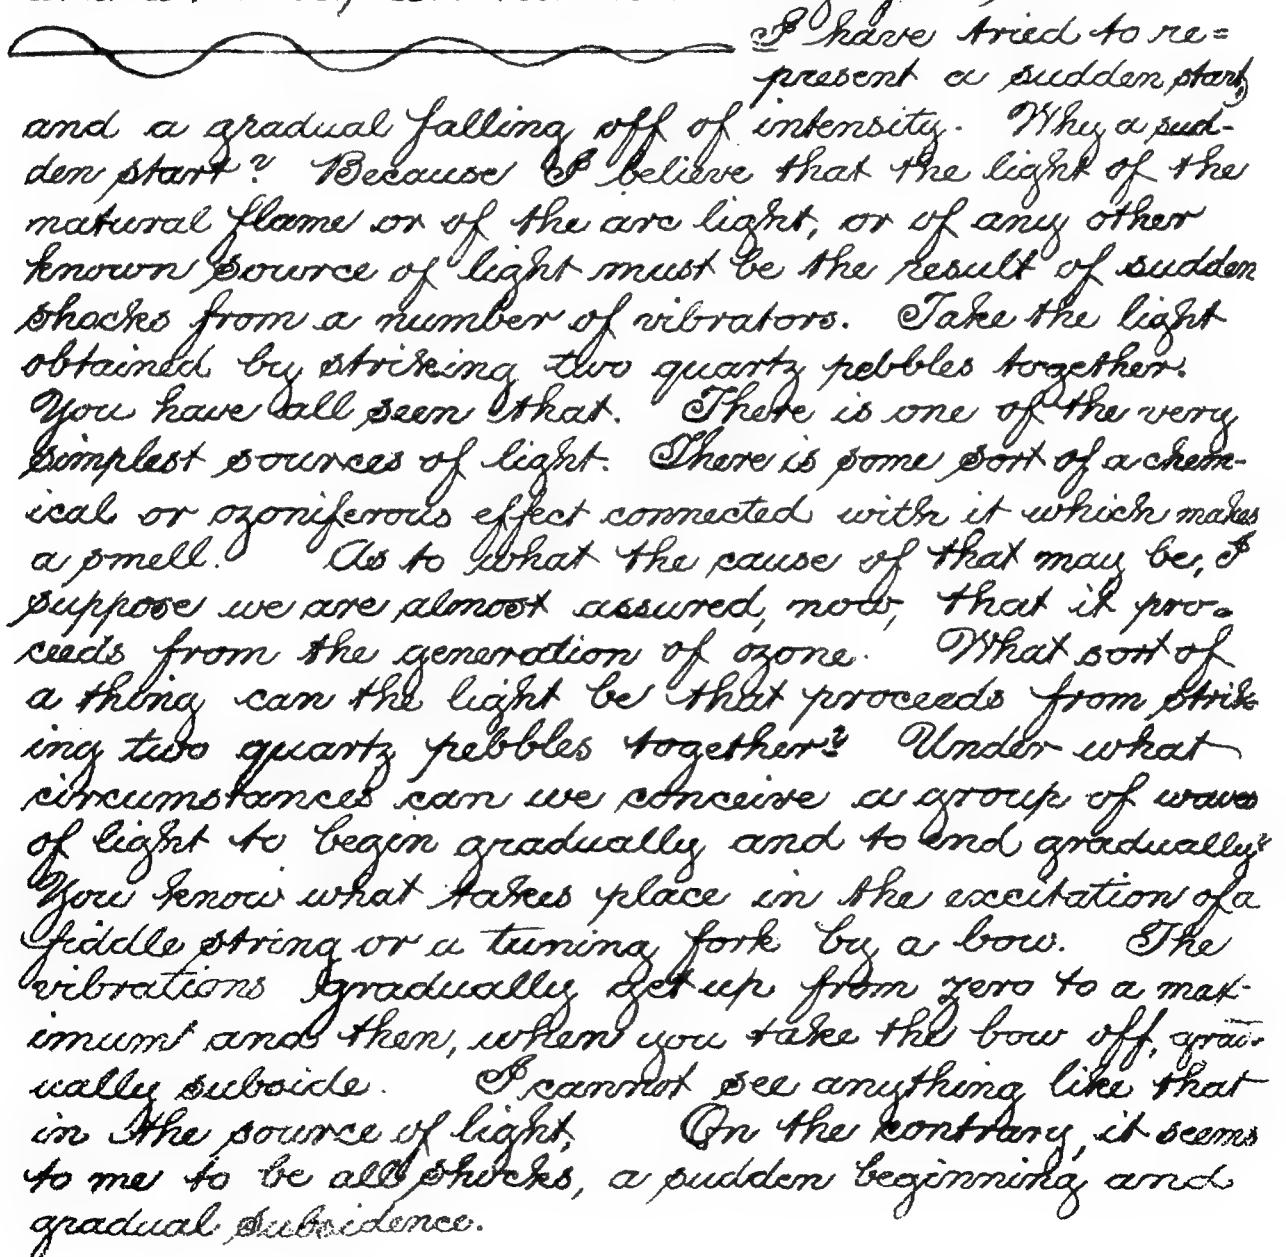 I have tried to re=
present a sudden start,
and a gradual falling off of intensity. Why a sud-
den start? Because I believe that the light of the
natural flame or of the arc light, or of any other
known source of light must be the result of sudden
shocks from a number of vibrators. Take the light
obtained by striking two quartz pebbles together.
You have all seen that. There is one of the very
simplest sources of light. There is some sort of a chem-
ical or ozoniferous effect connected with it which makes
a smell. As to what the cause of that may be, I
suppose we are almost assured, now, that it pro-
ceeds from the generation of ozone. What sort of
a thing can the light be that proceeds from strik-
ing two quartz pebbles together? Under what
circumstances can we conceive a group of waves
of light to begin gradually and to end gradually?
You know what takes place in the excitation of a
fiddle string or a tuning fork by a bow. The
vibrations gradually get up from zero to a max-
imum and then, when you take the bow off, grad-
ually subside. I cannot see anything like that
in the source of light. On the contrary, it seems
to me to be all shocks, a sudden beginning and
gradual subsidence.